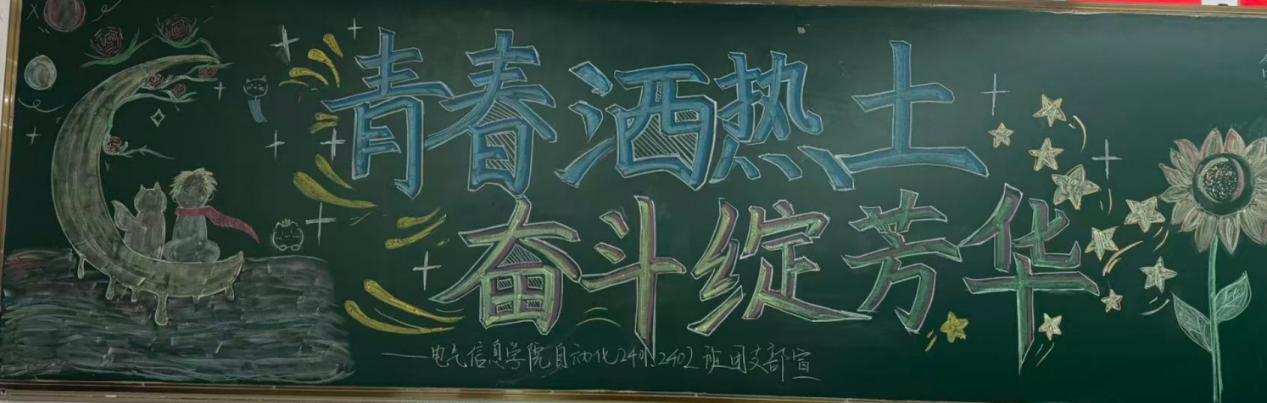 青春洒热土
奋斗绽芳华
——电气信息学院自动化2401、2402班团支部宣